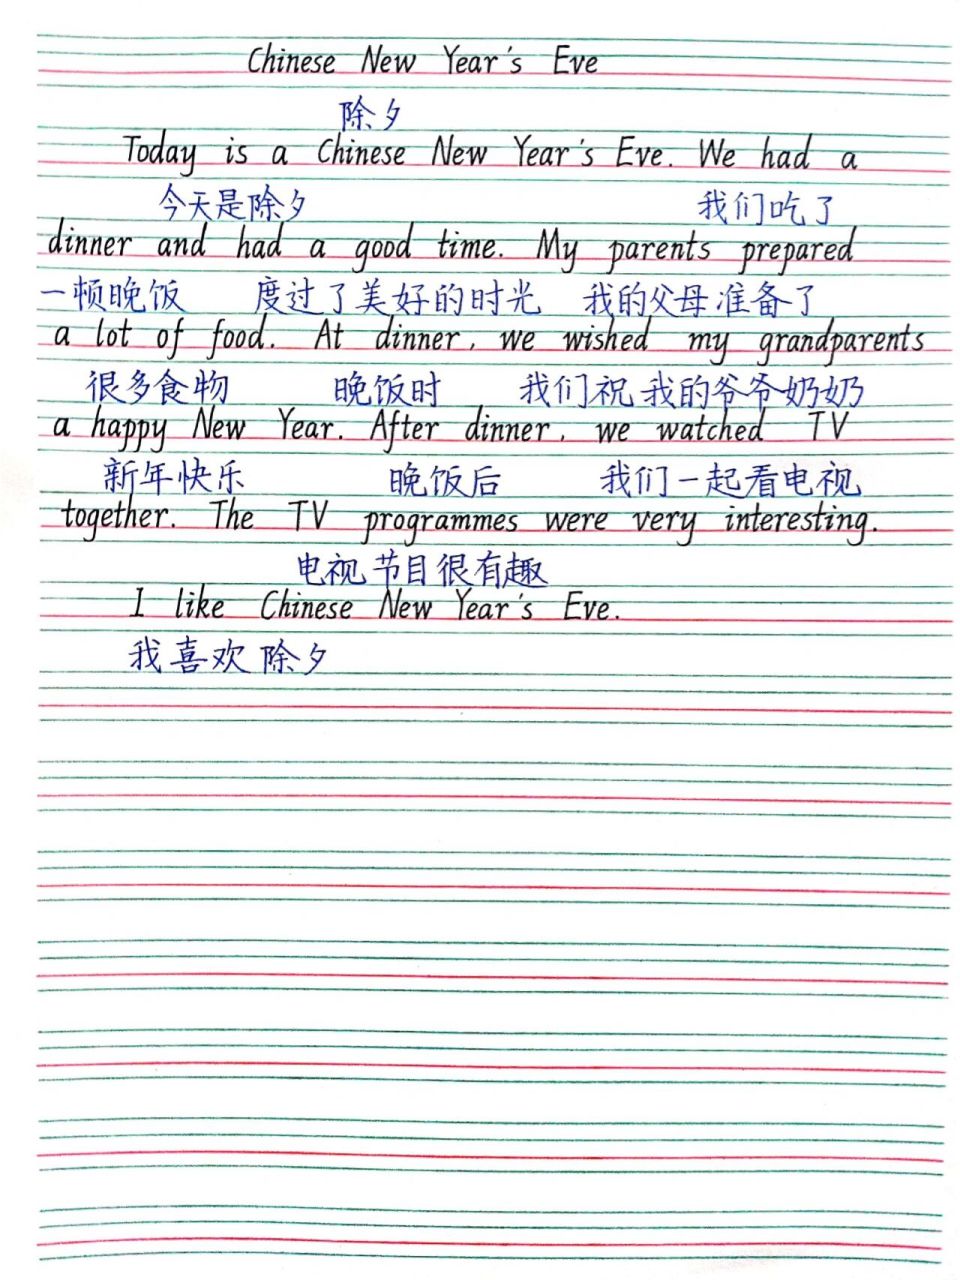 Chinese New Year's Eve
除夕
Today is a Chinese New Year's Eve. We had a
今天是除夕 我们吃了
dinner and had a good time. My parents prepared
一顿晚饭 度过了美好的时光 我的父母准备了
a lot of food. At dinner, we wished my grandparents
很多食物 晚饭时 我们祝我的爷爷奶奶
a happy New Year. After dinner, we watched TV
新年快乐 晚饭后 我们一起看电视
together. The TV programmes were very interesting.
电视节目很有趣
I like Chinese New Year's Eve.
我喜欢除夕